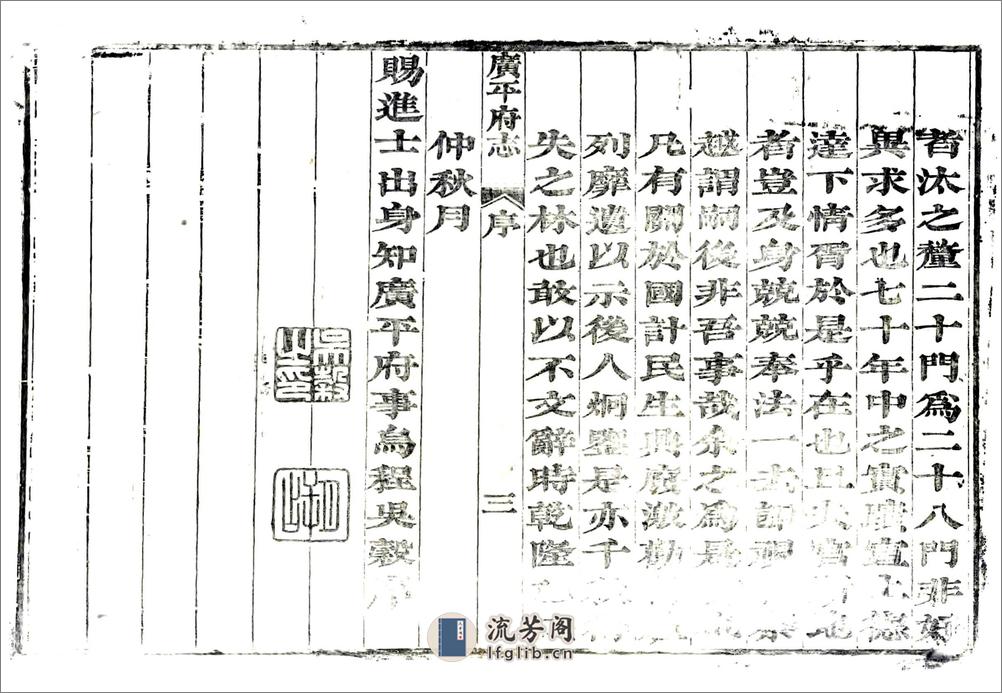 者汰之釐二十門爲二十八門非好
異求多也七十年中之實蹟宣上德
達下情胥於是乎在也且夫官斯地
者豈及身兢兢奉法一去卽視
越謂嗣後非吾事哉余之爲是
凡有關於國計民生典廢激勸
列靡遺以示後人炯鑒是亦千
失之林也敢以不文辭時乾隆
仲秋月
廣平府志
序
三
賜進士出身知廣平府事烏程吳穀序
吳穀之印
流芳阁
lfglib.cn